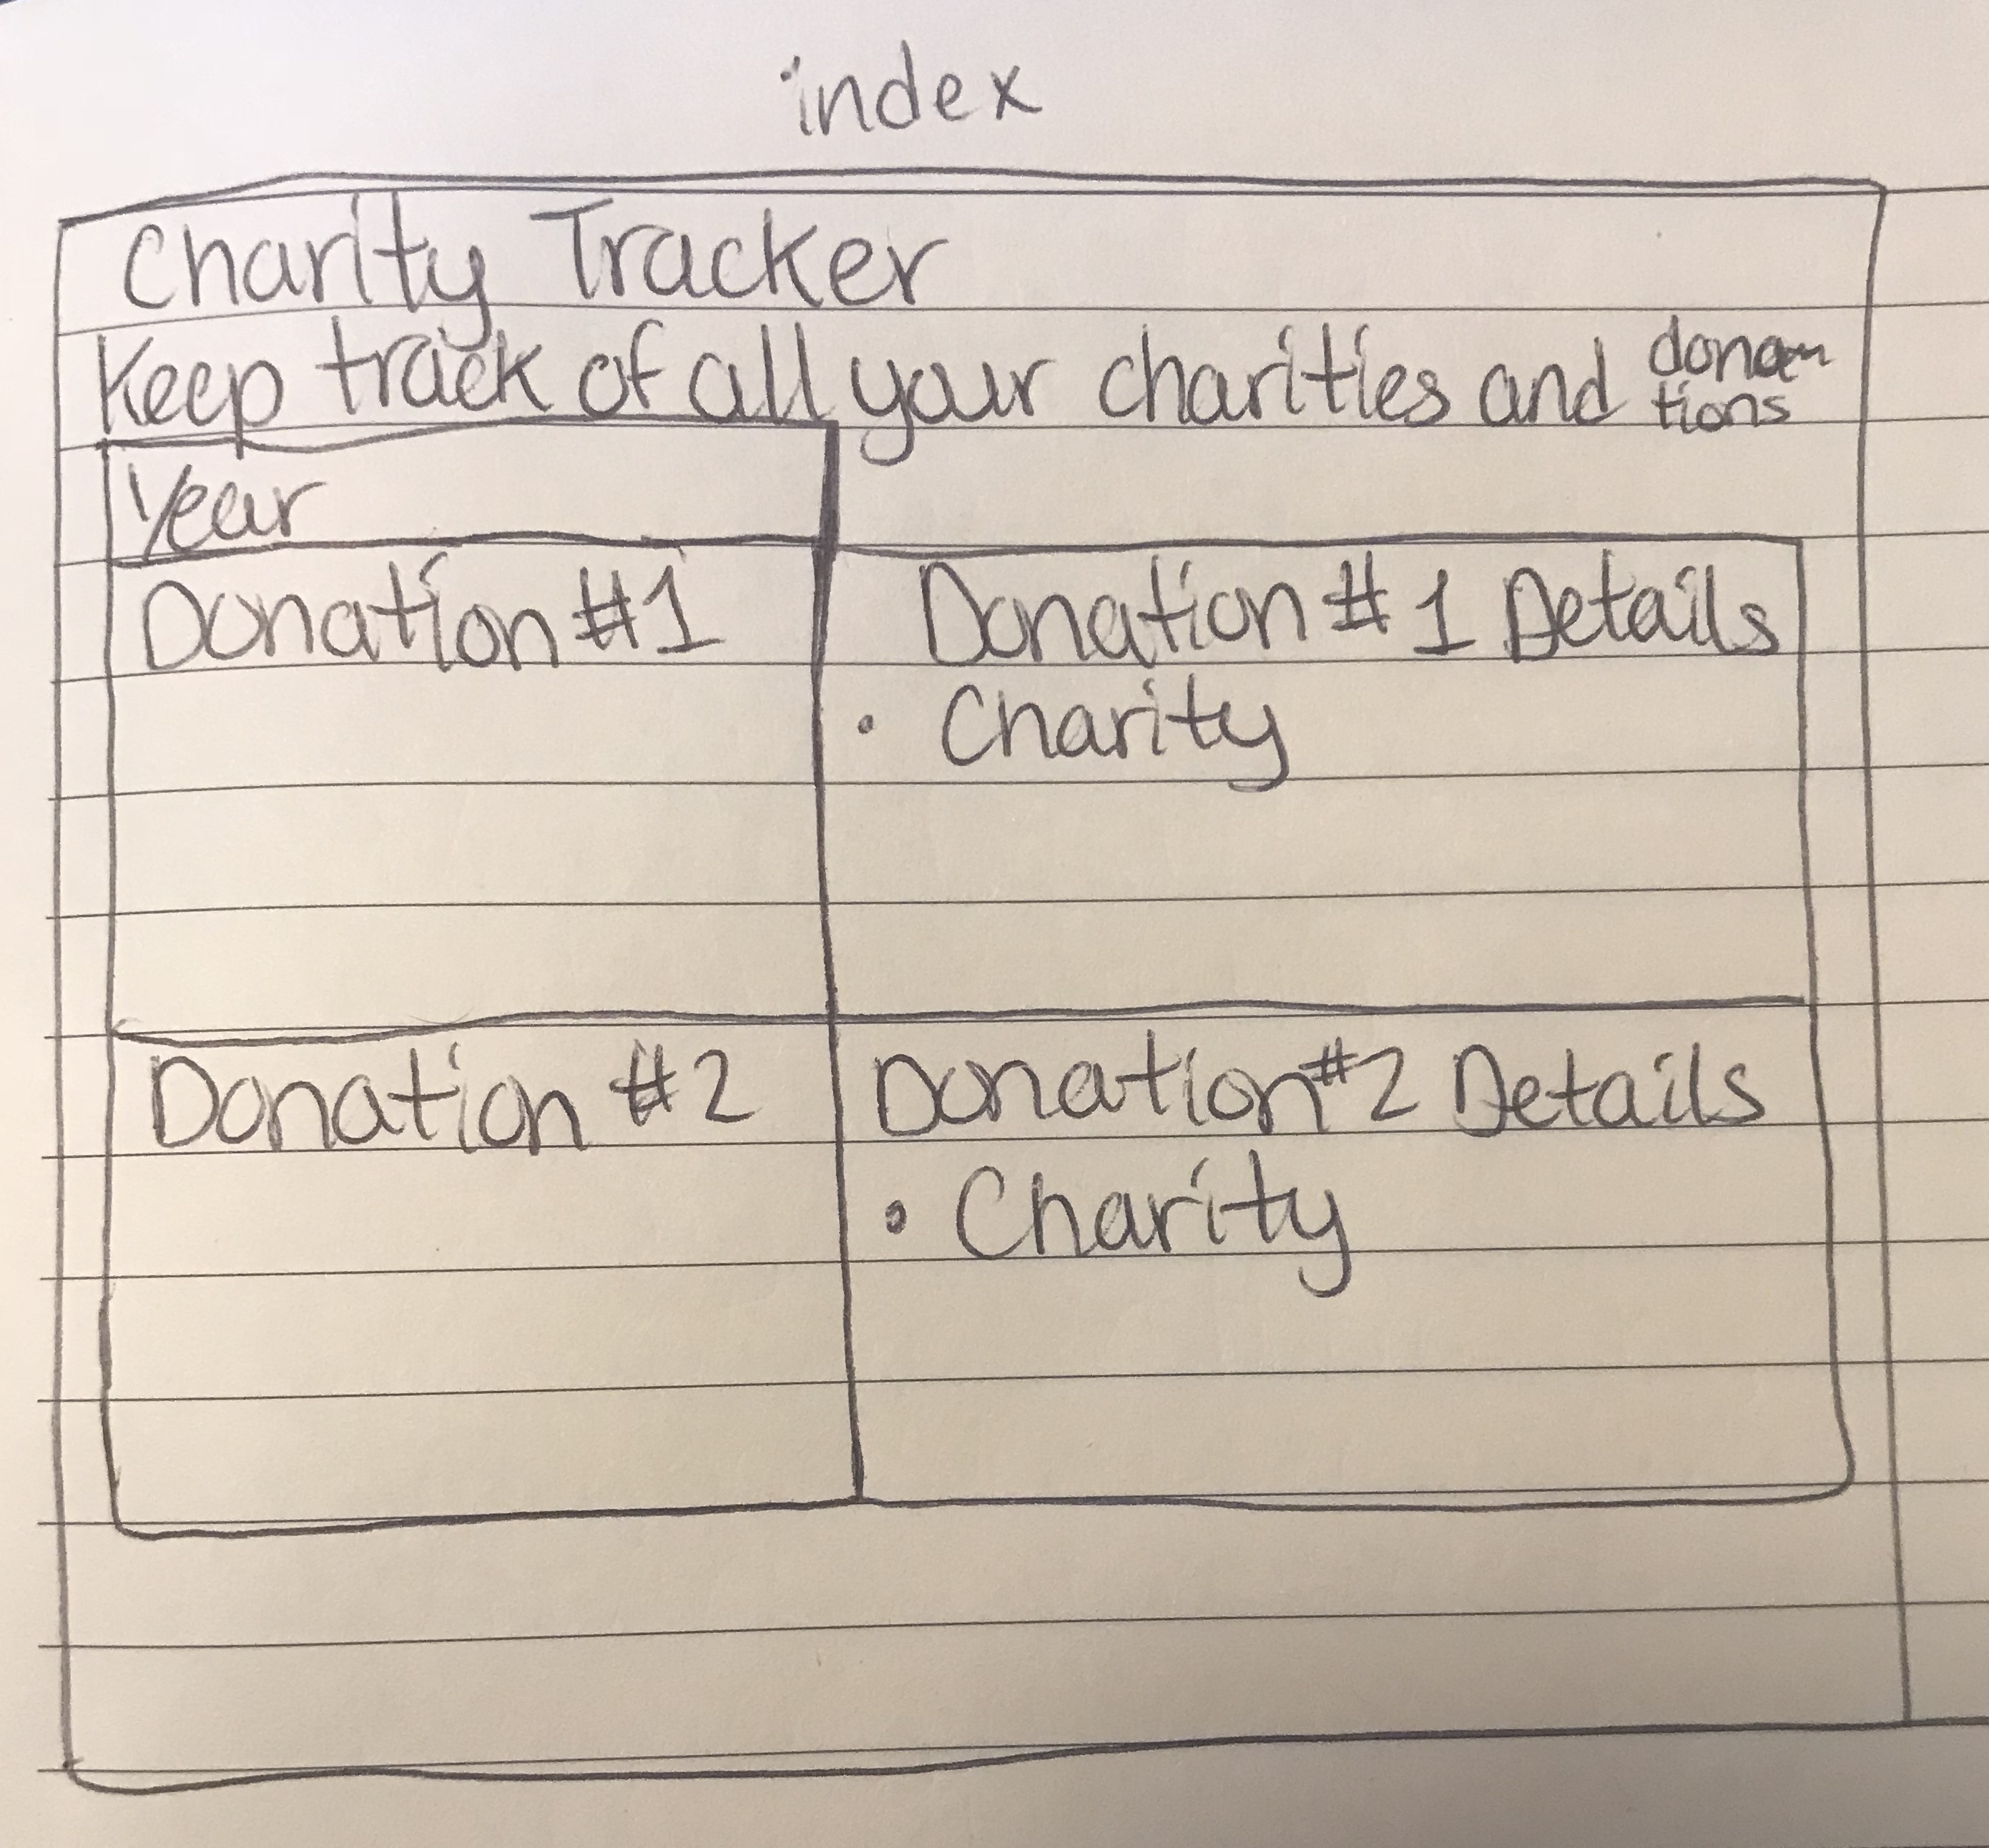 index
Charity Tracker
Keep track of all your charities and donations
Year
Donation #1
Donation #1 Details
• Charity
Donation #2
Donation #2 Details
• Charity